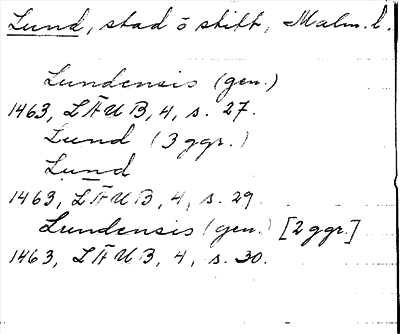 Lund, stad o stift, Malm. l.
Lundensis (gen.)
1463, LÄUB, 4, s. 27.
Lund (3 ggr.)
Lund
1463, LÄUB, 4, s. 29.
Lundensis (gen.) [2 ggr.]
1463, LÄUB, 4, s. 30.